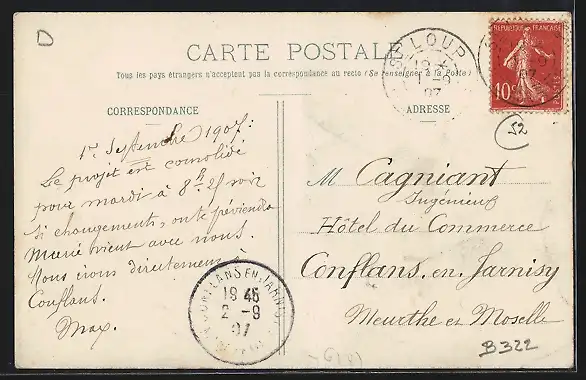 D
CARTE POSTALE
Tous les pays étrangers n'acceptent pas la correspondance au recto (Se renseigner à la Poste)
CORRESPONDANCE
1er Septembre 1907.
Le projet est consolidé
pour mardi à 8h 25 soir
si changements, on te préviendra
Marié vient avec nous.
Nous irons directement à
Conflans.
Max.
ST LOUP
RÉPUBLIQUE FRANÇAISE
10c
POSTES
ADRESSE
52
M Cagniant
Ingénieur
Hôtel du Commerce
Conflans. en. Jarnisy
Meurthe et Moselle
CONFLANS EN JARNISY
18 45
2 - 9
07
B 322